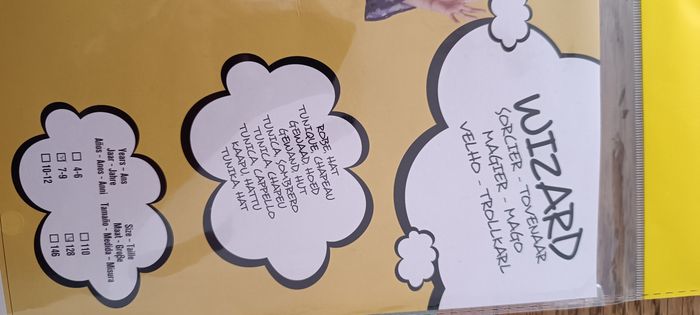 WIZARD
SORCIER - TOVENAAR
MAGIER - MAGO
VELHO - TROLLKARL
ROBE, HAT
TUNIQUE, CHAPEAU
GEWAAD, HOED
GEWAND, HUT
TUNICA, SOMBRERO
TUNICA, CHAPEU
TUNICA, CAPPELLO
KAAPU, HATTU
TUNIKA, HAT
Years - Ans
Jaar - Jahre
Años - Anos - Anni
4-6
7-9
10-12
Size - Taille
Maat - Größe
Tamaño - Medida - Misura
110
128
146